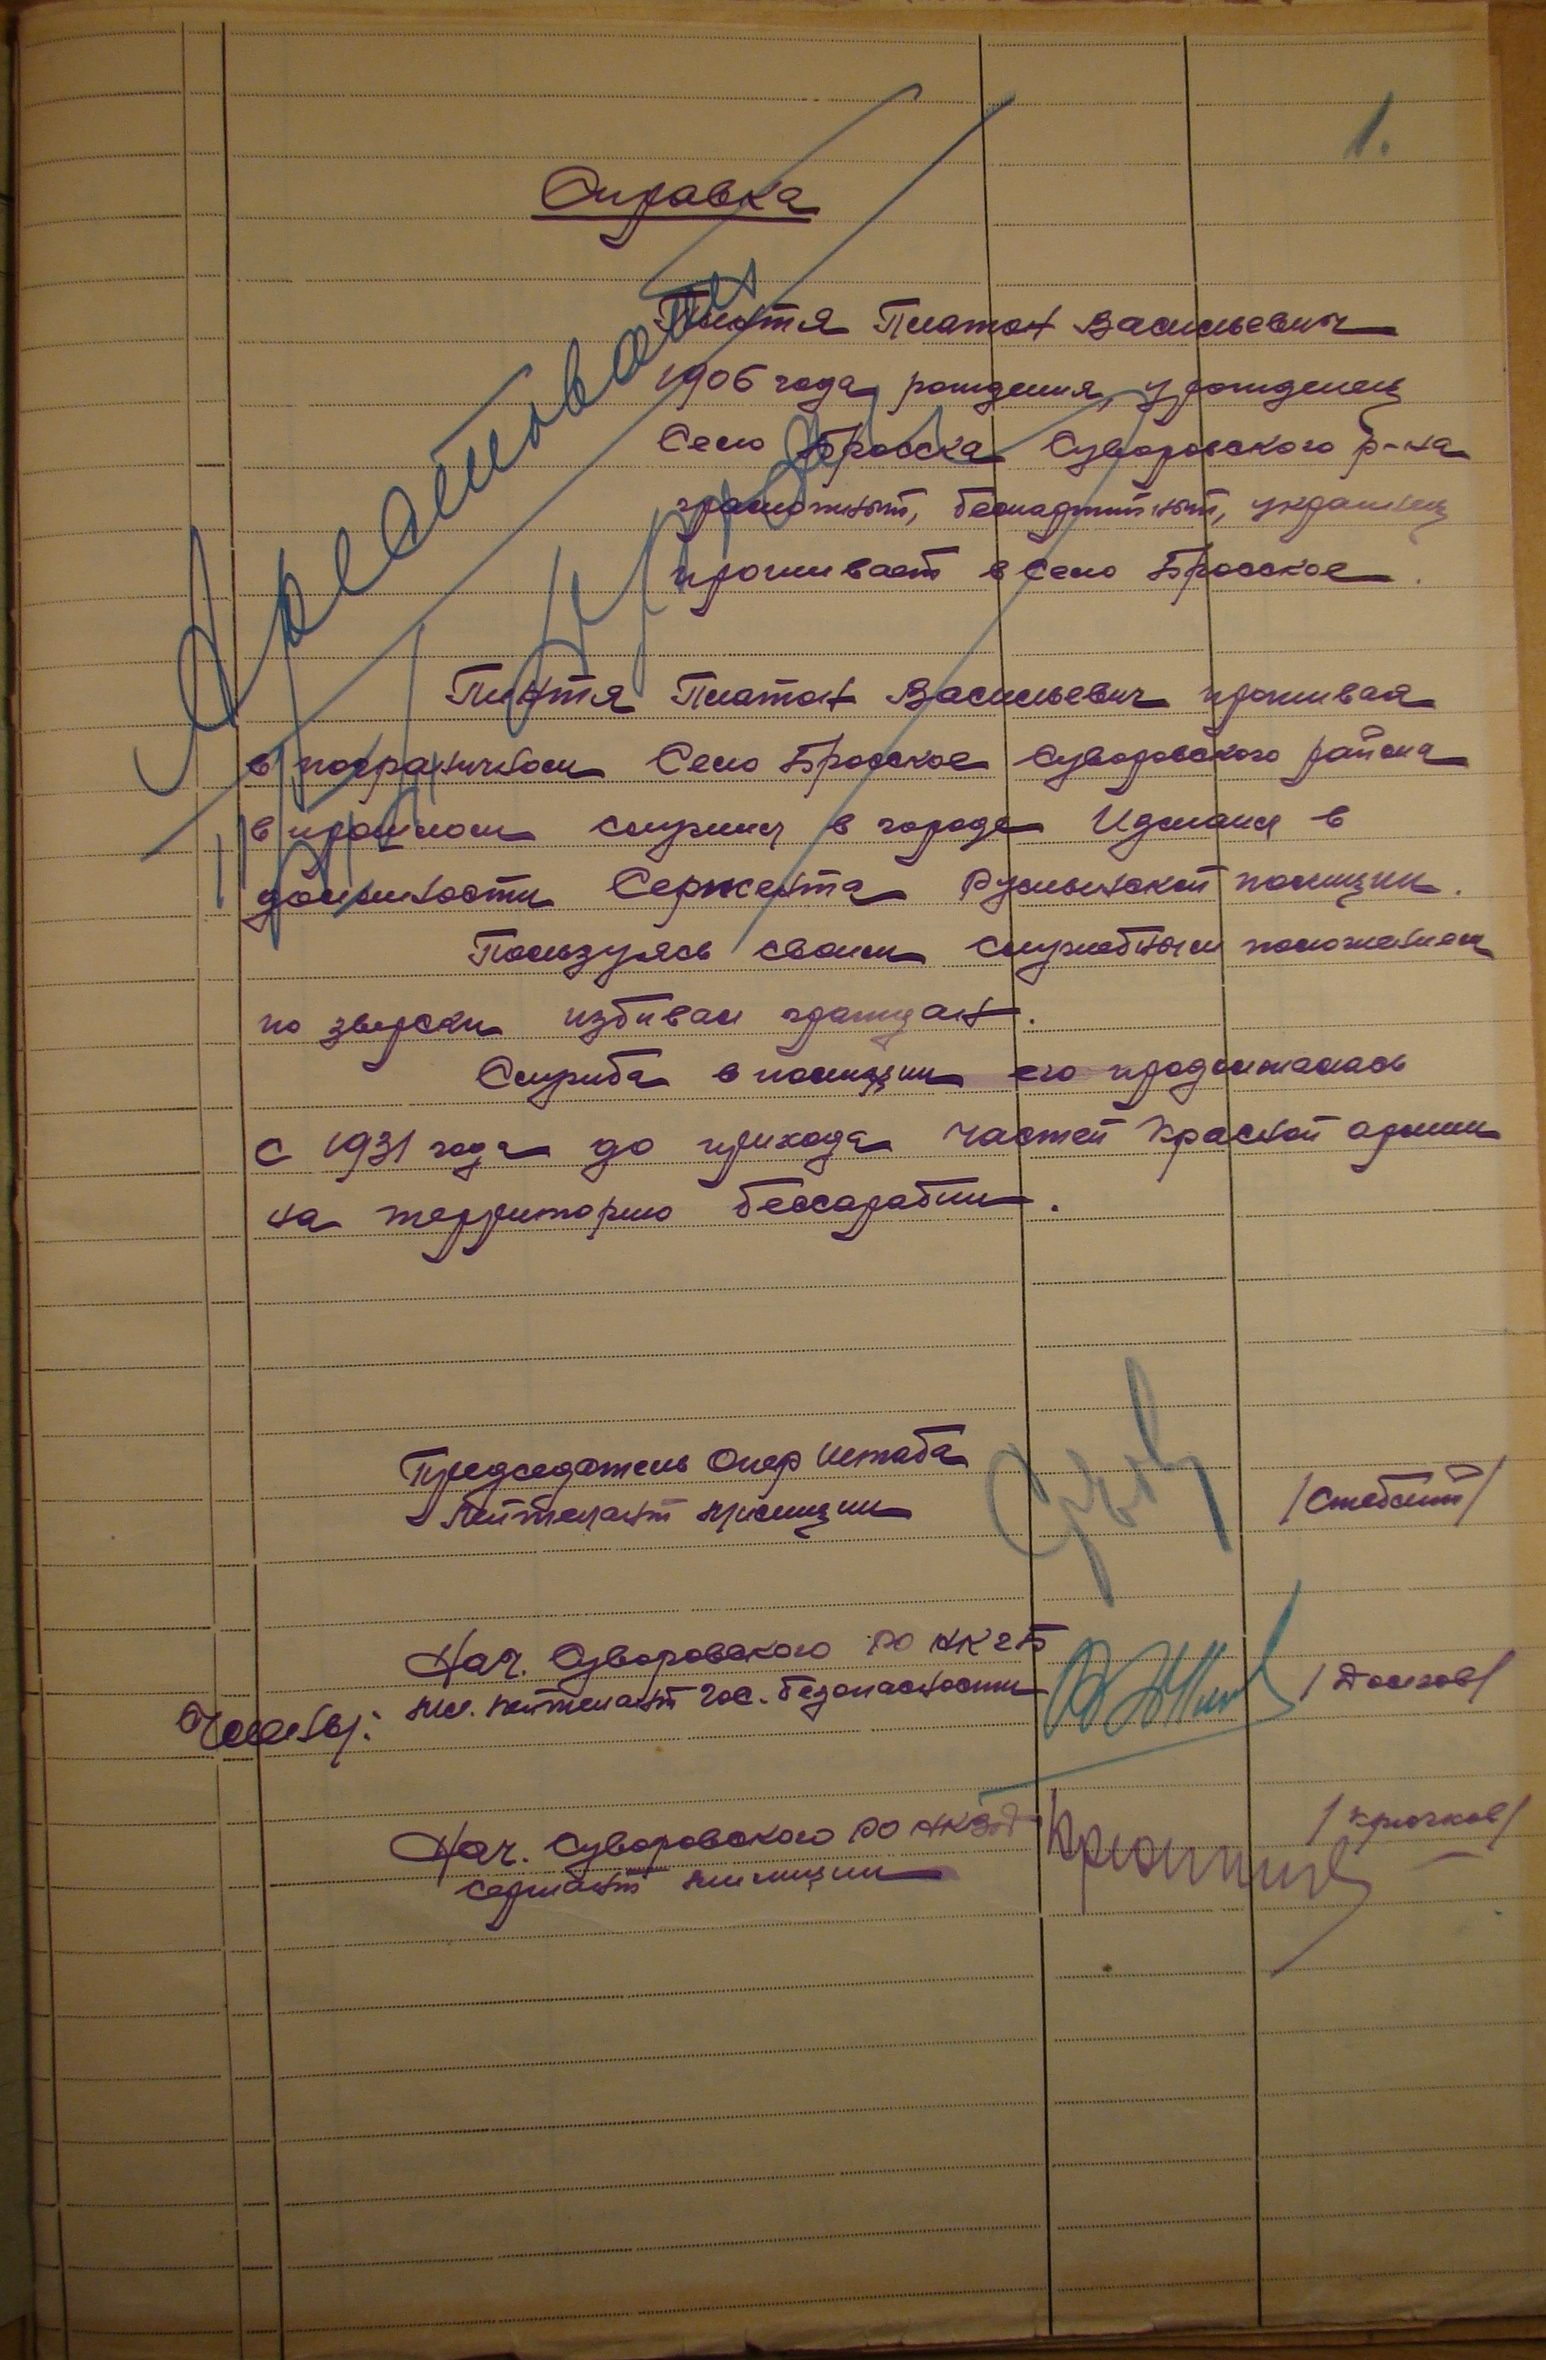 1.
Справка
Пинтя Платон Васильевич
1906 года рождения, урожденец
Село Бросска Суворовского р-на
грамотный, беспартийный, украинец
проживает в село Бросское.
Арестовать
Пинтя Платон Васильевич проживая
в пограничном Село Бросское Суворовского района
в прошлом служил в городе Измаил в
должности Сержента Румынской полиции.
Пользуясь своим служебным положением
по зверски избивал граждан.
Служба в полиции его продолжалась
с 1931 года до прихода частей Красной армии
на территорию бессарабии.
Председатель Опер Штаба
Лейтенант милиции /Стеблий/
Нач. Суворовского РО НКГБ
Члены: мл. лейтенант Гос. безопасности /Долгов/
Нач. Суворовского РО НКВД /Крючков/
сержант милиции